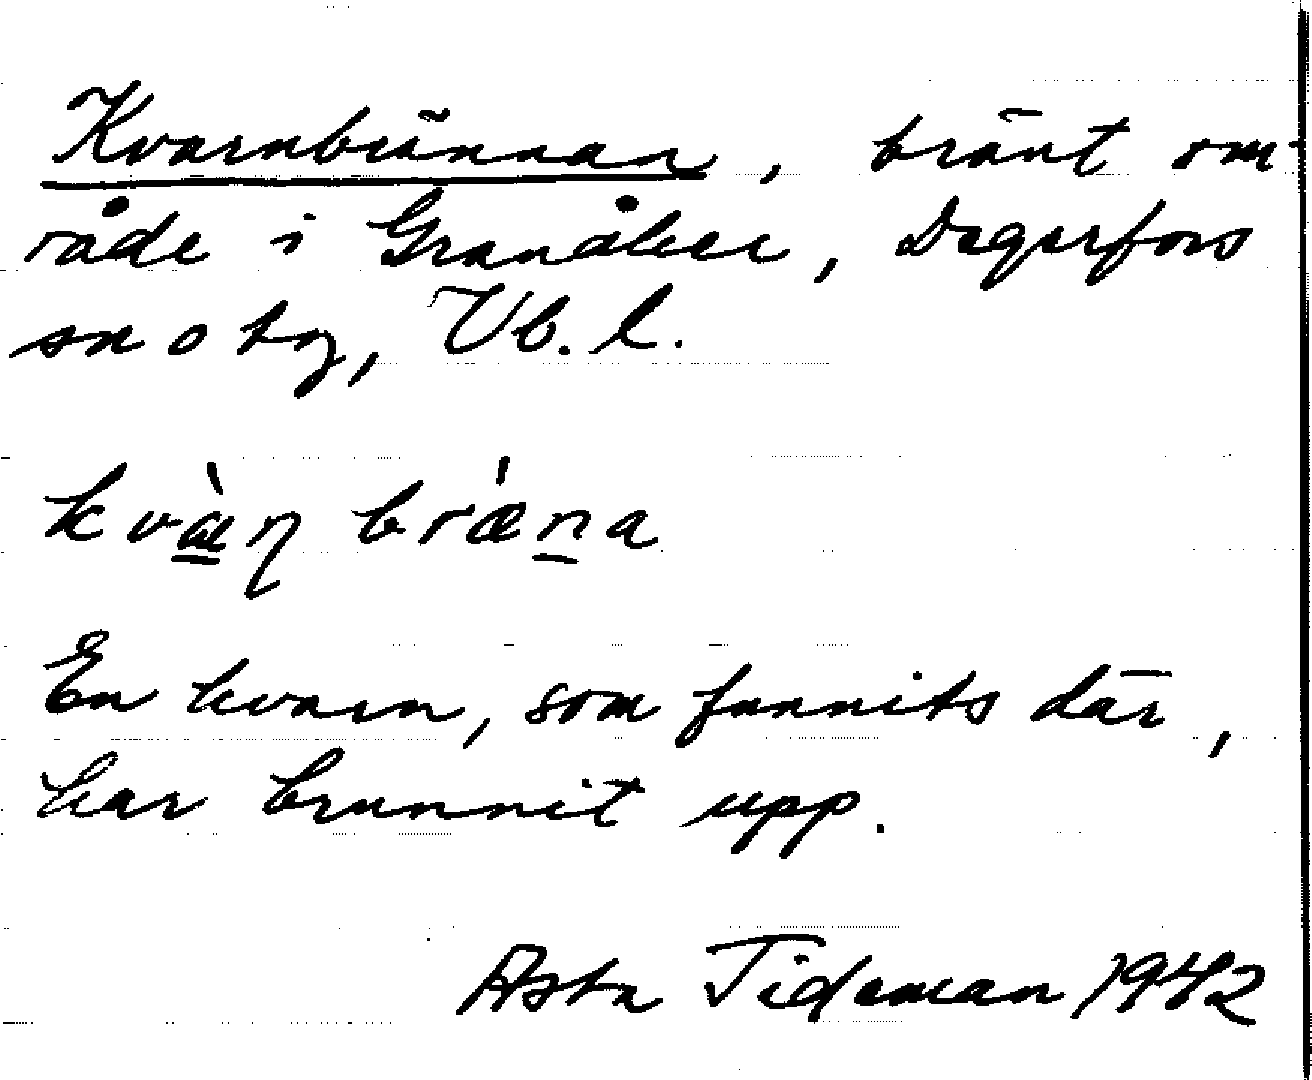 Kvarnbrännan, bränt om-
råde i Granåker, Degerfors
sn o tg, Vb. l.
kvæ̀ɳ brǽna
En kvarn, som funnits där,
har brunnit upp.
Asta Tideman 1942